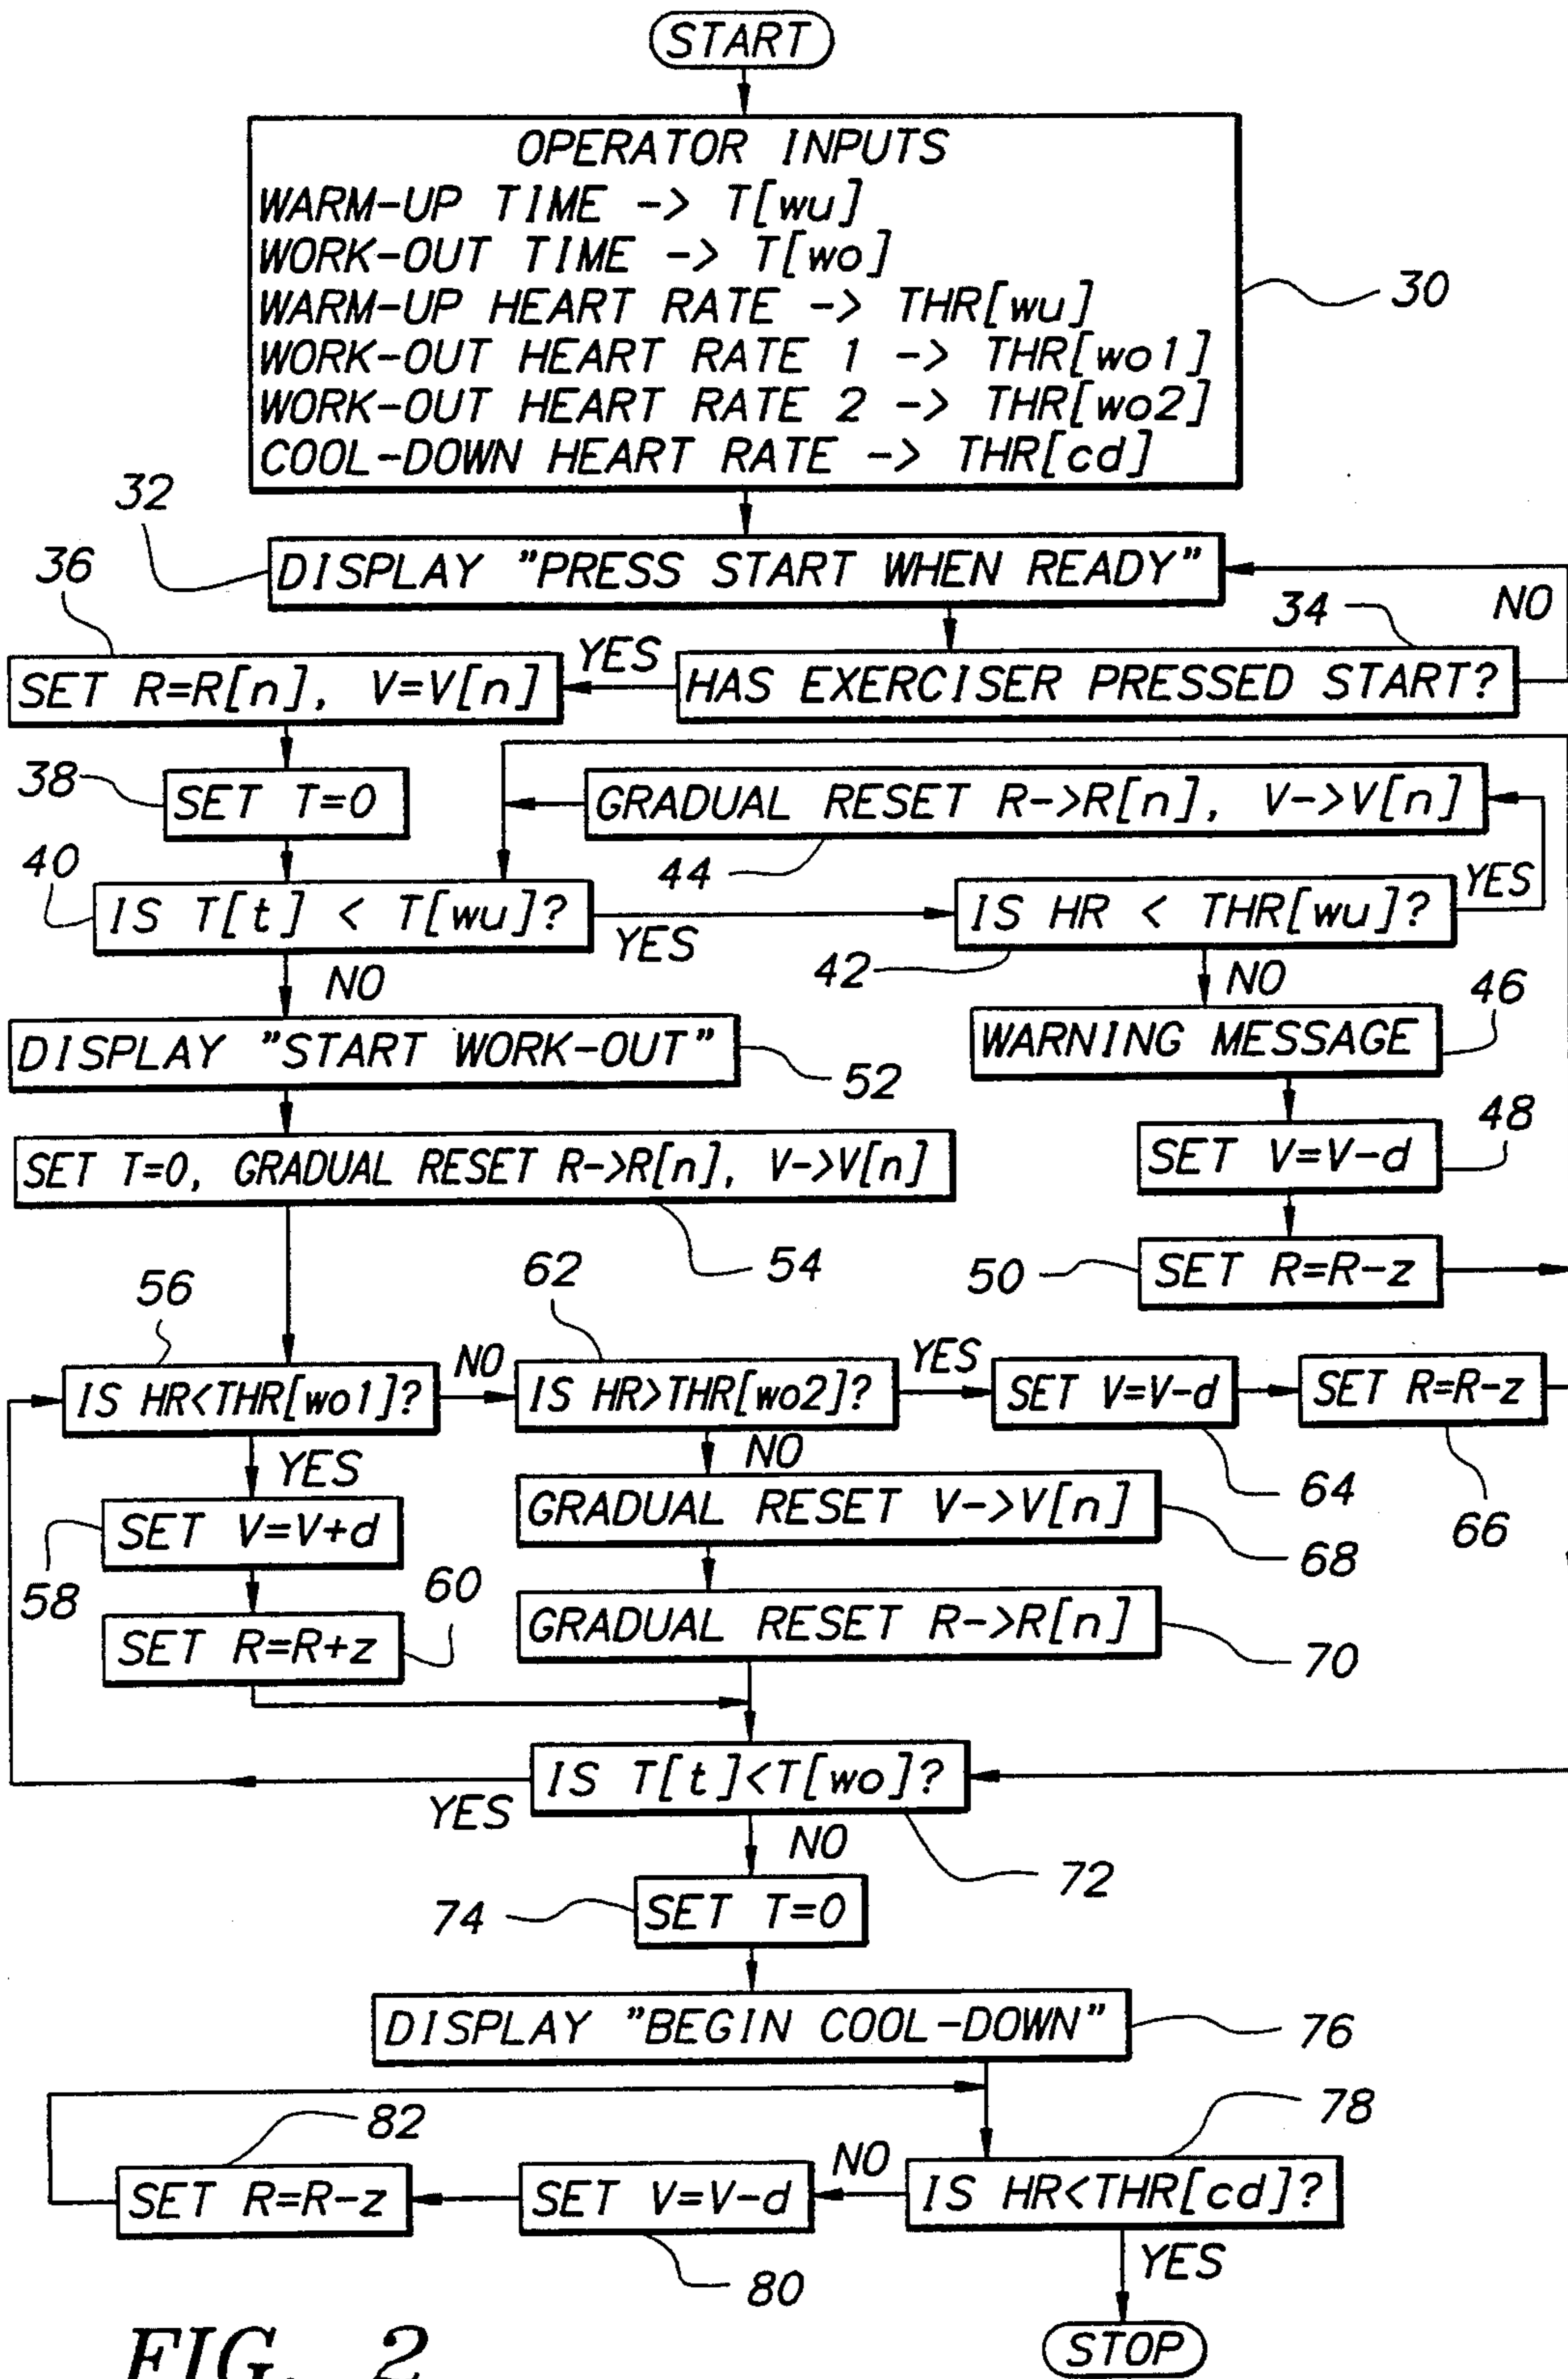 START
OPERATOR INPUTS
WARM-UP TIME -> T[wu]
WORK-OUT TIME -> T[wo]
WARM-UP HEART RATE -> THR[wu]
WORK-OUT HEART RATE 1 -> THR[wo1]
WORK-OUT HEART RATE 2 -> THR[wo2]
COOL-DOWN HEART RATE -> THR[cd]
30
32
DISPLAY "PRESS START WHEN READY"
36
34
NO
SET R=R[n], V=V[n]
YES
HAS EXERCISER PRESSED START?
38
SET T=0
GRADUAL RESET R->R[n], V->V[n]
44
40
IS T[t] < T[wu]?
YES
IS HR < THR[wu]?
YES
42
NO
NO
46
DISPLAY "START WORK-OUT"
52
WARNING MESSAGE
48
SET V=V-d
SET T=0, GRADUAL RESET R->R[n], V->V[n]
54
50
SET R=R-z
56
62
IS HR<THR[wo1]?
NO
IS HR>THR[wo2]?
YES
SET V=V-d
SET R=R-z
YES
NO
64
66
58
SET V=V+d
GRADUAL RESET V->V[n]
68
60
SET R=R+z
GRADUAL RESET R->R[n]
70
IS T[t]<T[wo]?
YES
NO
72
74
SET T=0
DISPLAY "BEGIN COOL-DOWN"
76
82
78
SET R=R-z
SET V=V-d
NO
IS HR<THR[cd]?
80
YES
STOP
FIG. 2